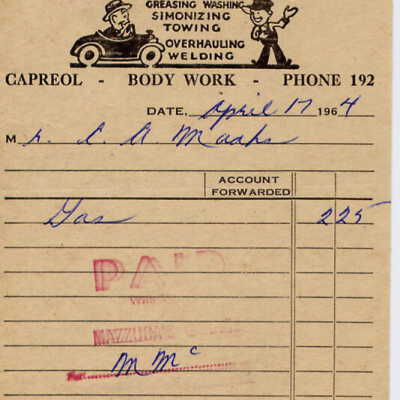 GREASING WASHING
SIMONIZING
TOWING
OVERHAULING
WELDING
CAPREOL - BODY WORK - PHONE 192
DATE, April 17 1964
Mr.
ACCOUNT
FORWARDED
Gas 2 25
PAID
M Mc